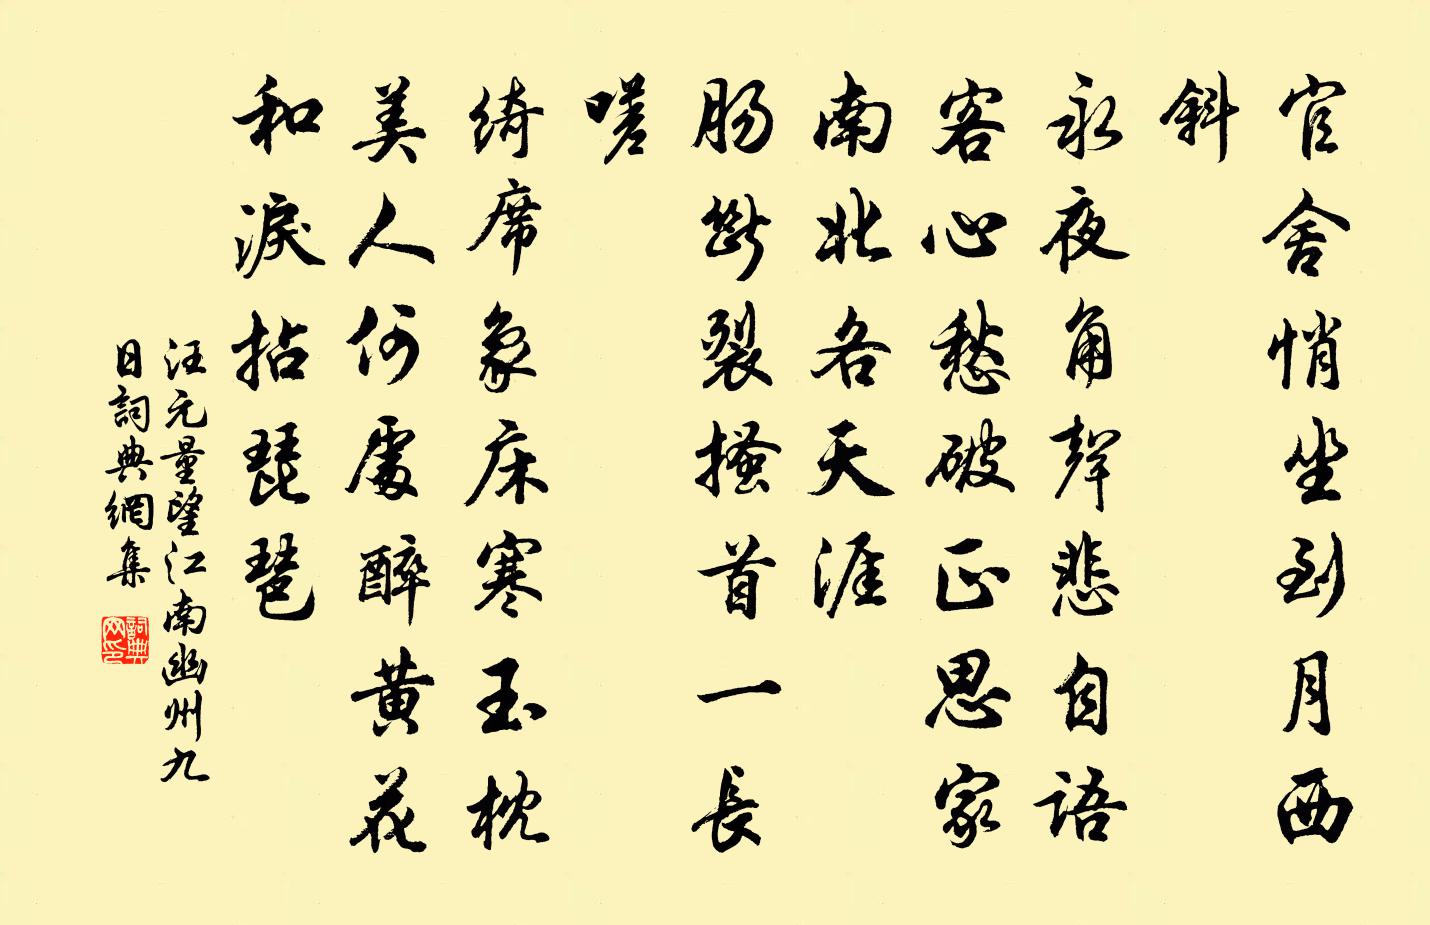 官舍悄坐到月西
斜
永夜角聲悲自語
客心愁破正思家
南北各天涯
腸斷裂搔首一長
嗟
綺席象床寒玉枕
美人何處醉黃花
和淚拈琵琶
汪元量望江南幽州九
日詞典網集
詞典网印